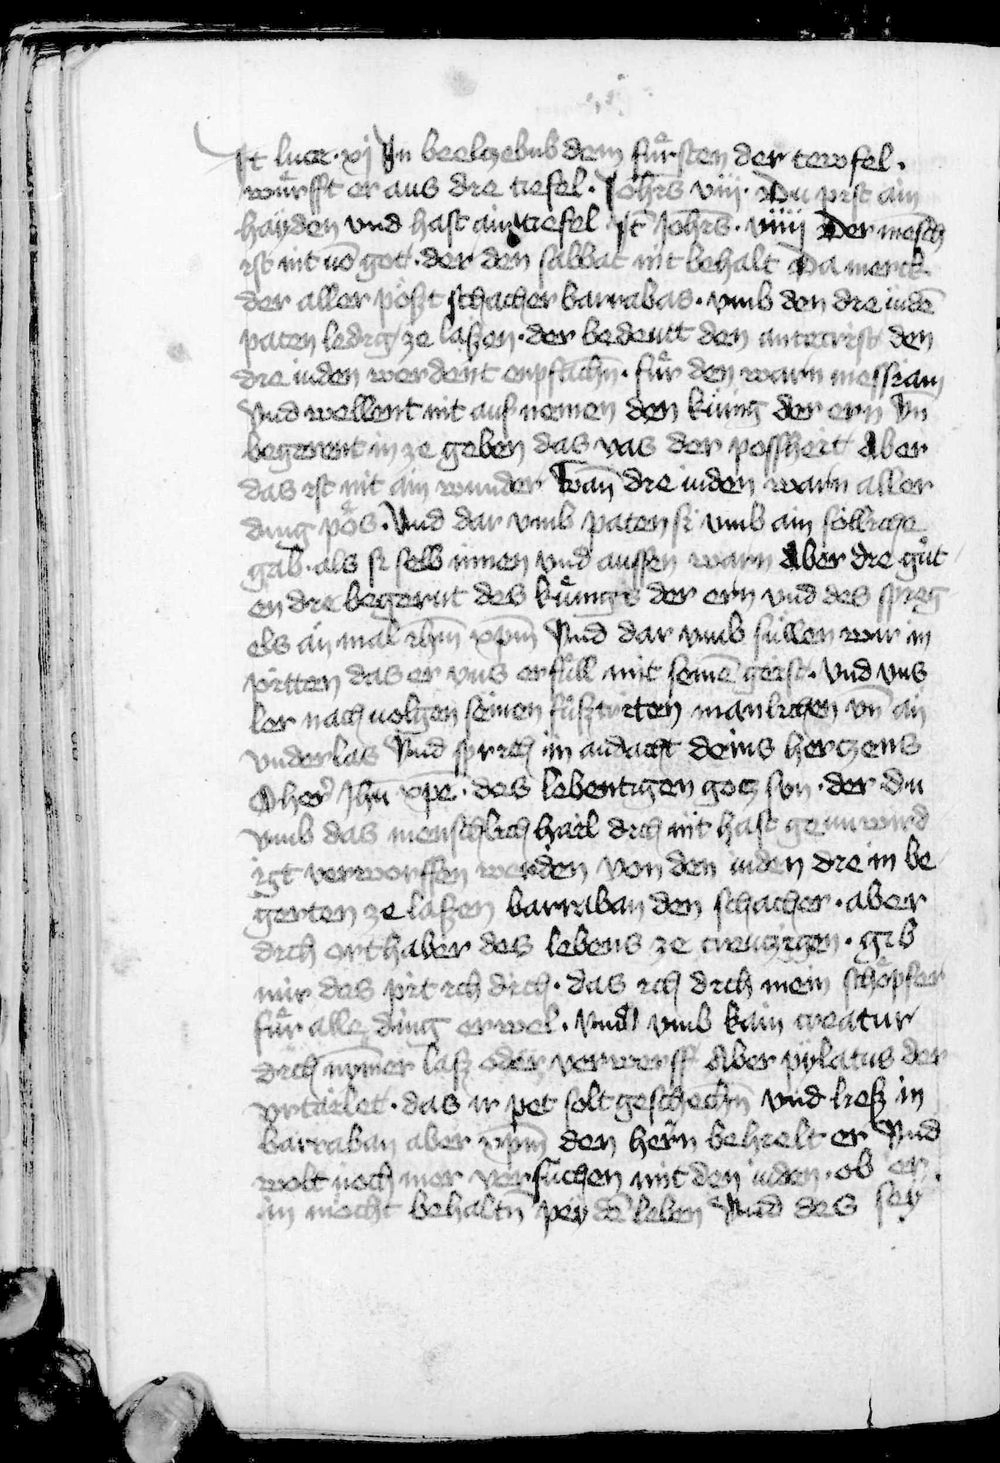 It luce · xj In beelczebub dem fuͤrsten der tewfel ·
wuͤrfft er aus die tiefel · Johis viij · Du pist ain
hayden vnd hast ain tiefel Jt Johis · viiij Der mēsch
ist nit vō got · der den sabbat nit behalt Da merck
der aller pöszt schacher barrabas · vmb den die iudē
paten ledig ze laszen · der bedeutt den antecrist den
die iuden werdent enpfachn̄ · fuͤr den warn messiam
Vnd wellent nit auf nemen den küng der ern Vn
begerent in ze geben das vas der possheit Aber
das ist nit ain wunder Wan̄ die iuden warn aller
ding poͤs · Vnd dar vmb paten si vmb ain sölliche
gab · als si selb innen vnd aussen warn Aber die guͤt
en die begerut des kuͤngs der ern vnd des spieg
els an mal ihm̄ xpm̄ Vnd dar vmb süllen wir in
pitten das er vns erfüll mit seinē geist · Vnd vns
ler nach uolgen seinen fuͤsztriten manlichen vn̄ an
vnderlas Vnd sprich in andacht deins herczens
O her Jhū xpē · des lebentigen gocz sun · der du
vmb das menschlich hail dich nit hast geunwird
igt verworffen werden von den iuden die in be
gerten ze laszen barraban den schacher · aber
dich orthaber des lebens ze creuczigen · gib
mir des pit ich dich · das ich dich mein schöpfer
fuͤr alle ding erwel · Vnd vmb kain creatur
dich nym̄er lasz oder verwerff Aber pylatus der
vrtailet · das ir pet solt geschechn̄ vnd liesz in
barraban aber xpm̄ den hern behielt er Vnd
wolt noch mer versuchen mit den iuden · ob er
in möcht behaltn̄ pey dē leben Vnd des sey